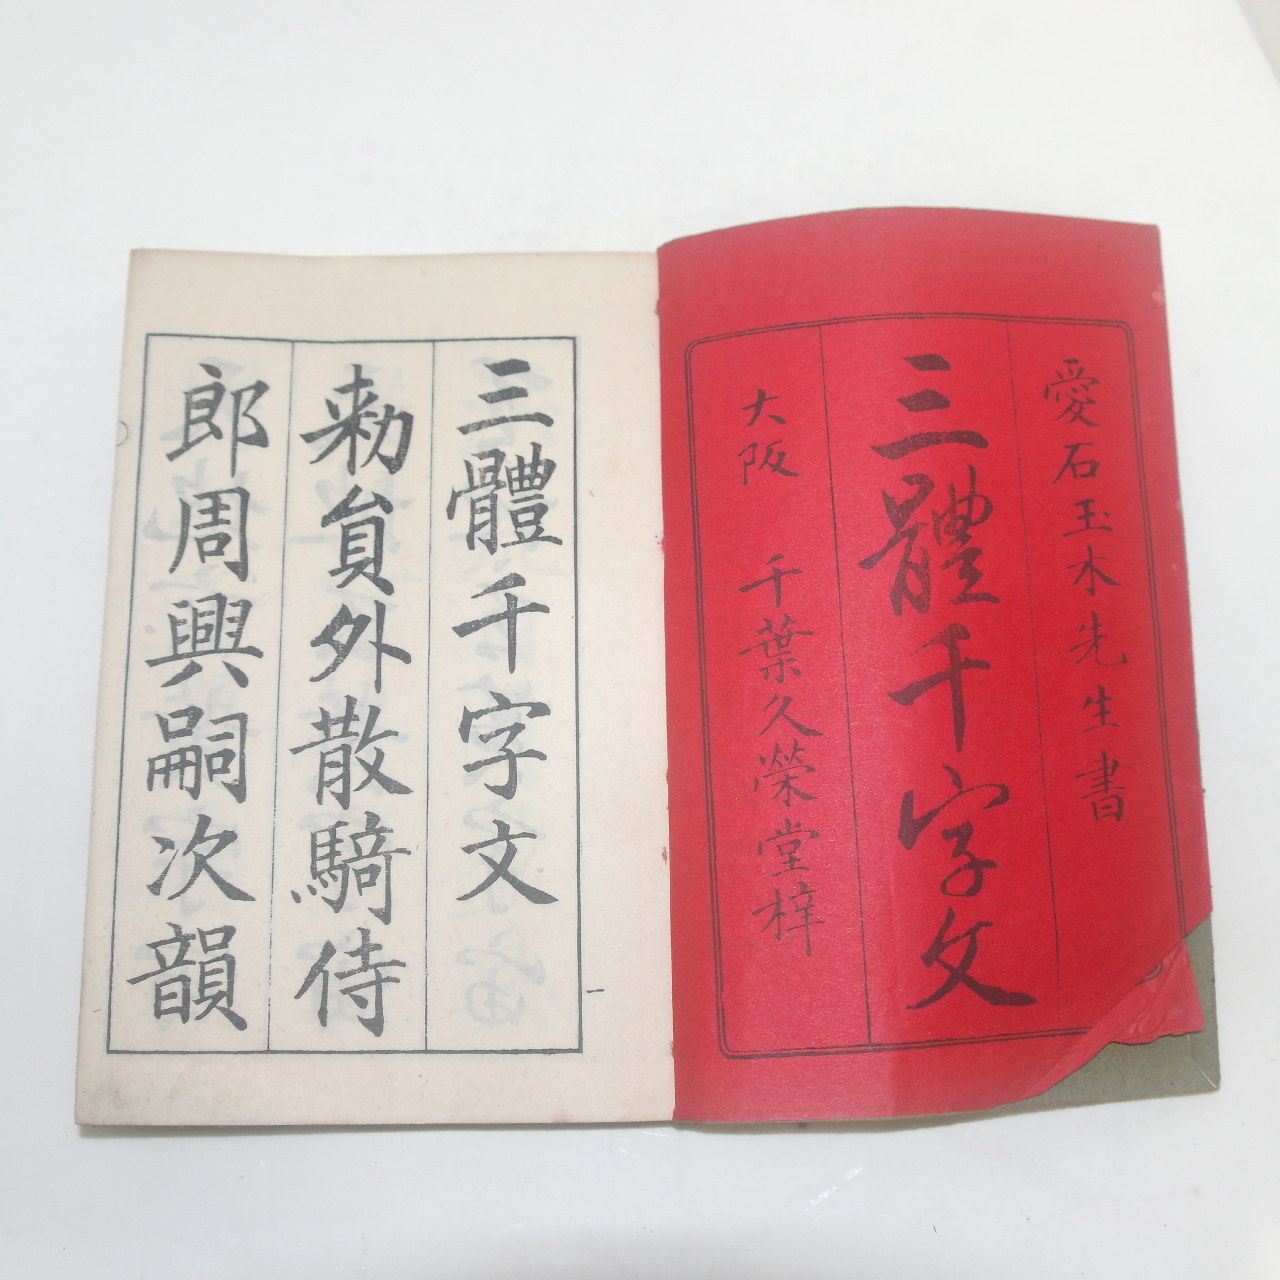 愛石玉木先生書
三體千字文
大阪 千葉久榮堂梓
三體千字文
勅員外散騎侍
郎周興嗣次韻
一